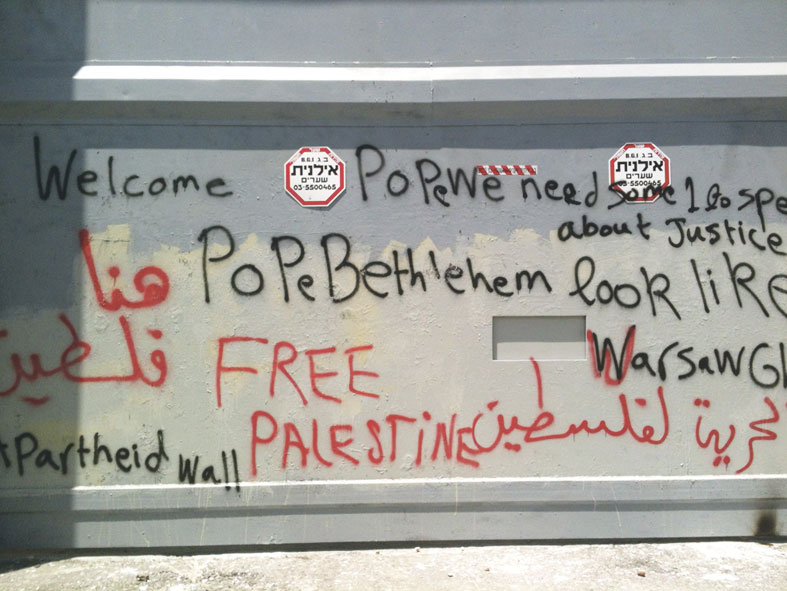 Welcome
ב ג ו ס R
אילנית
שערים
03-5500465
אילנית
שערים
03-5500465
Pope We need some 1 to spe
about Justice
هنا
فلسطين
Pope Bethlehem look like
Warsaw Gh
FREE
PALESTINE
الحرية لفلسطين
Apartheid Wall